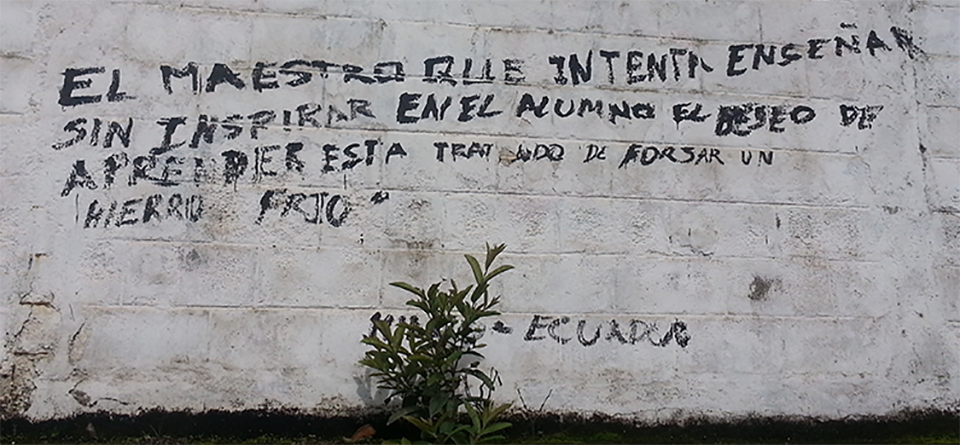 EL MAESTRO QUE INTENTA ENSEÑAR
SIN INSPIRAR EN EL ALUMNO EL DESEO DE
APRENDER ESTA TRATANDO DE FORSAR UN
"HIERRO FRIO"
- ECUADOR